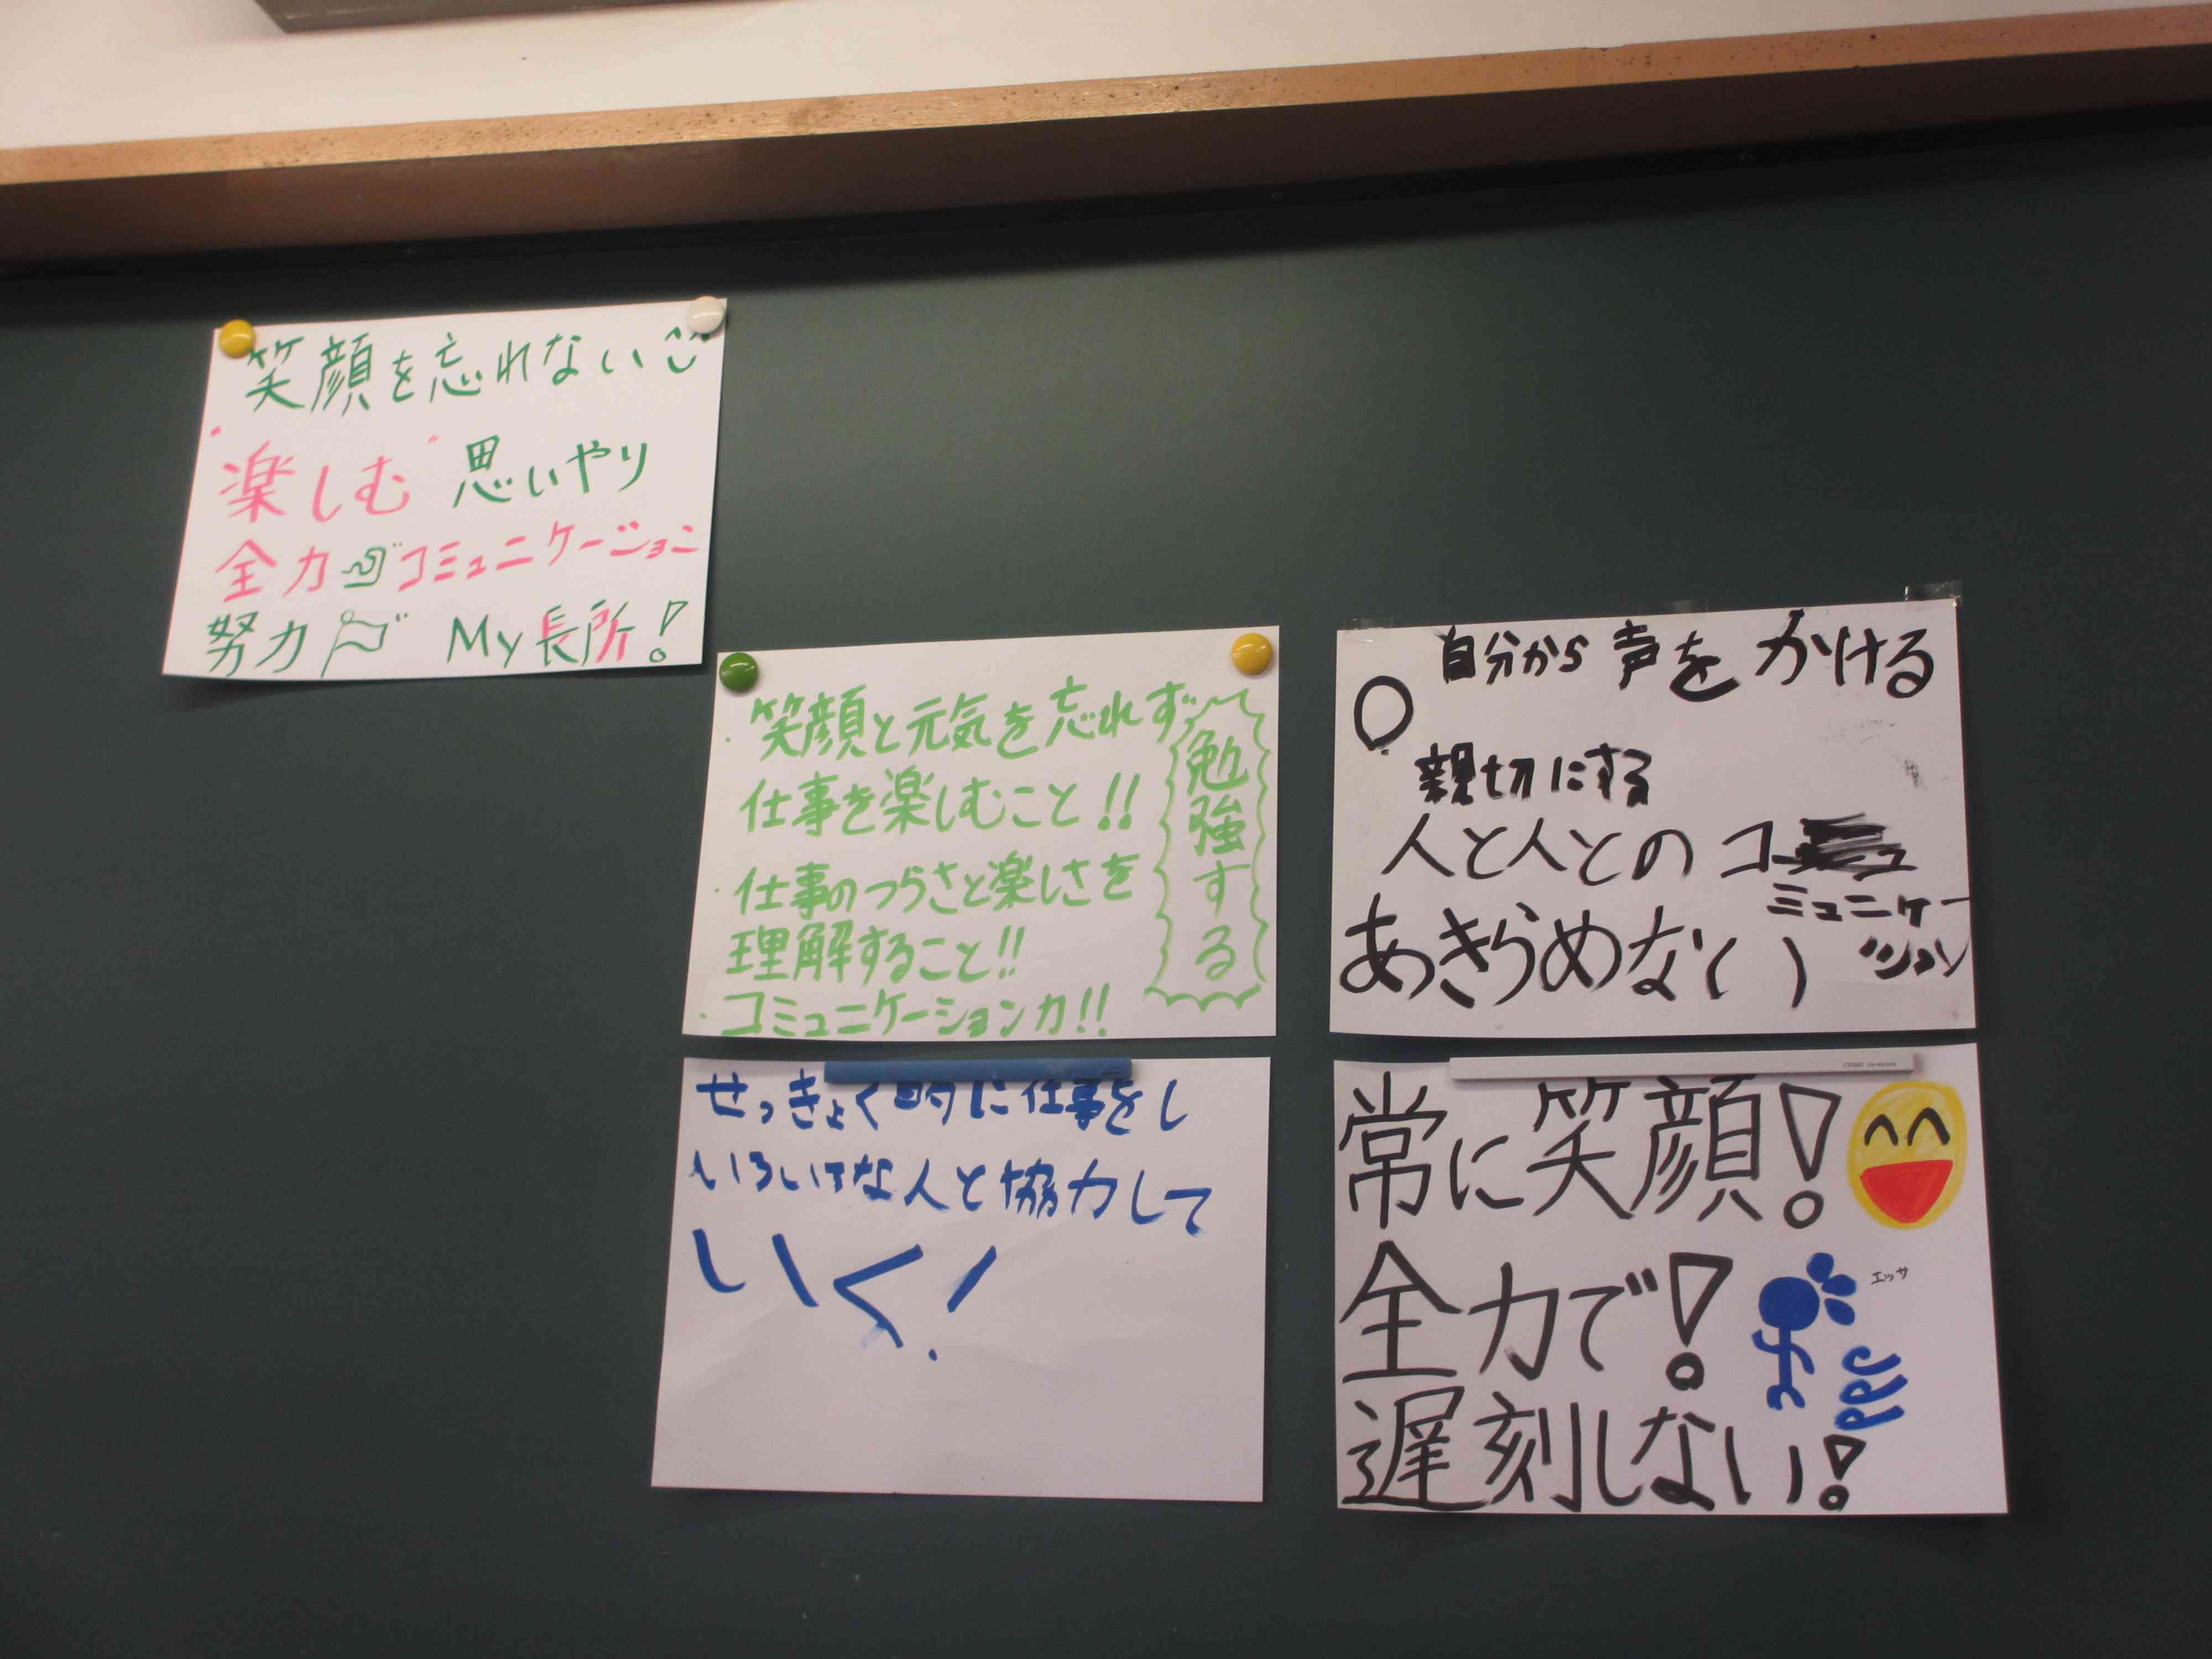 笑顔を忘れない
"楽しむ" 思いやり
全力 コミュニケーション
努力 My長所!
・笑顔と元気を忘れず
仕事を楽しむこと!!
・仕事のつらさと楽しさを
理解すること!!
・コミュニケーション力!!
勉強する
自分から声をかける
親切にする
人と人とのコミュニケーション
あきらめない
せっきょく的に仕事をし
いろいろな人と協力して
いく!
常に笑顔!
全力で!
エッサ
遅刻しない!